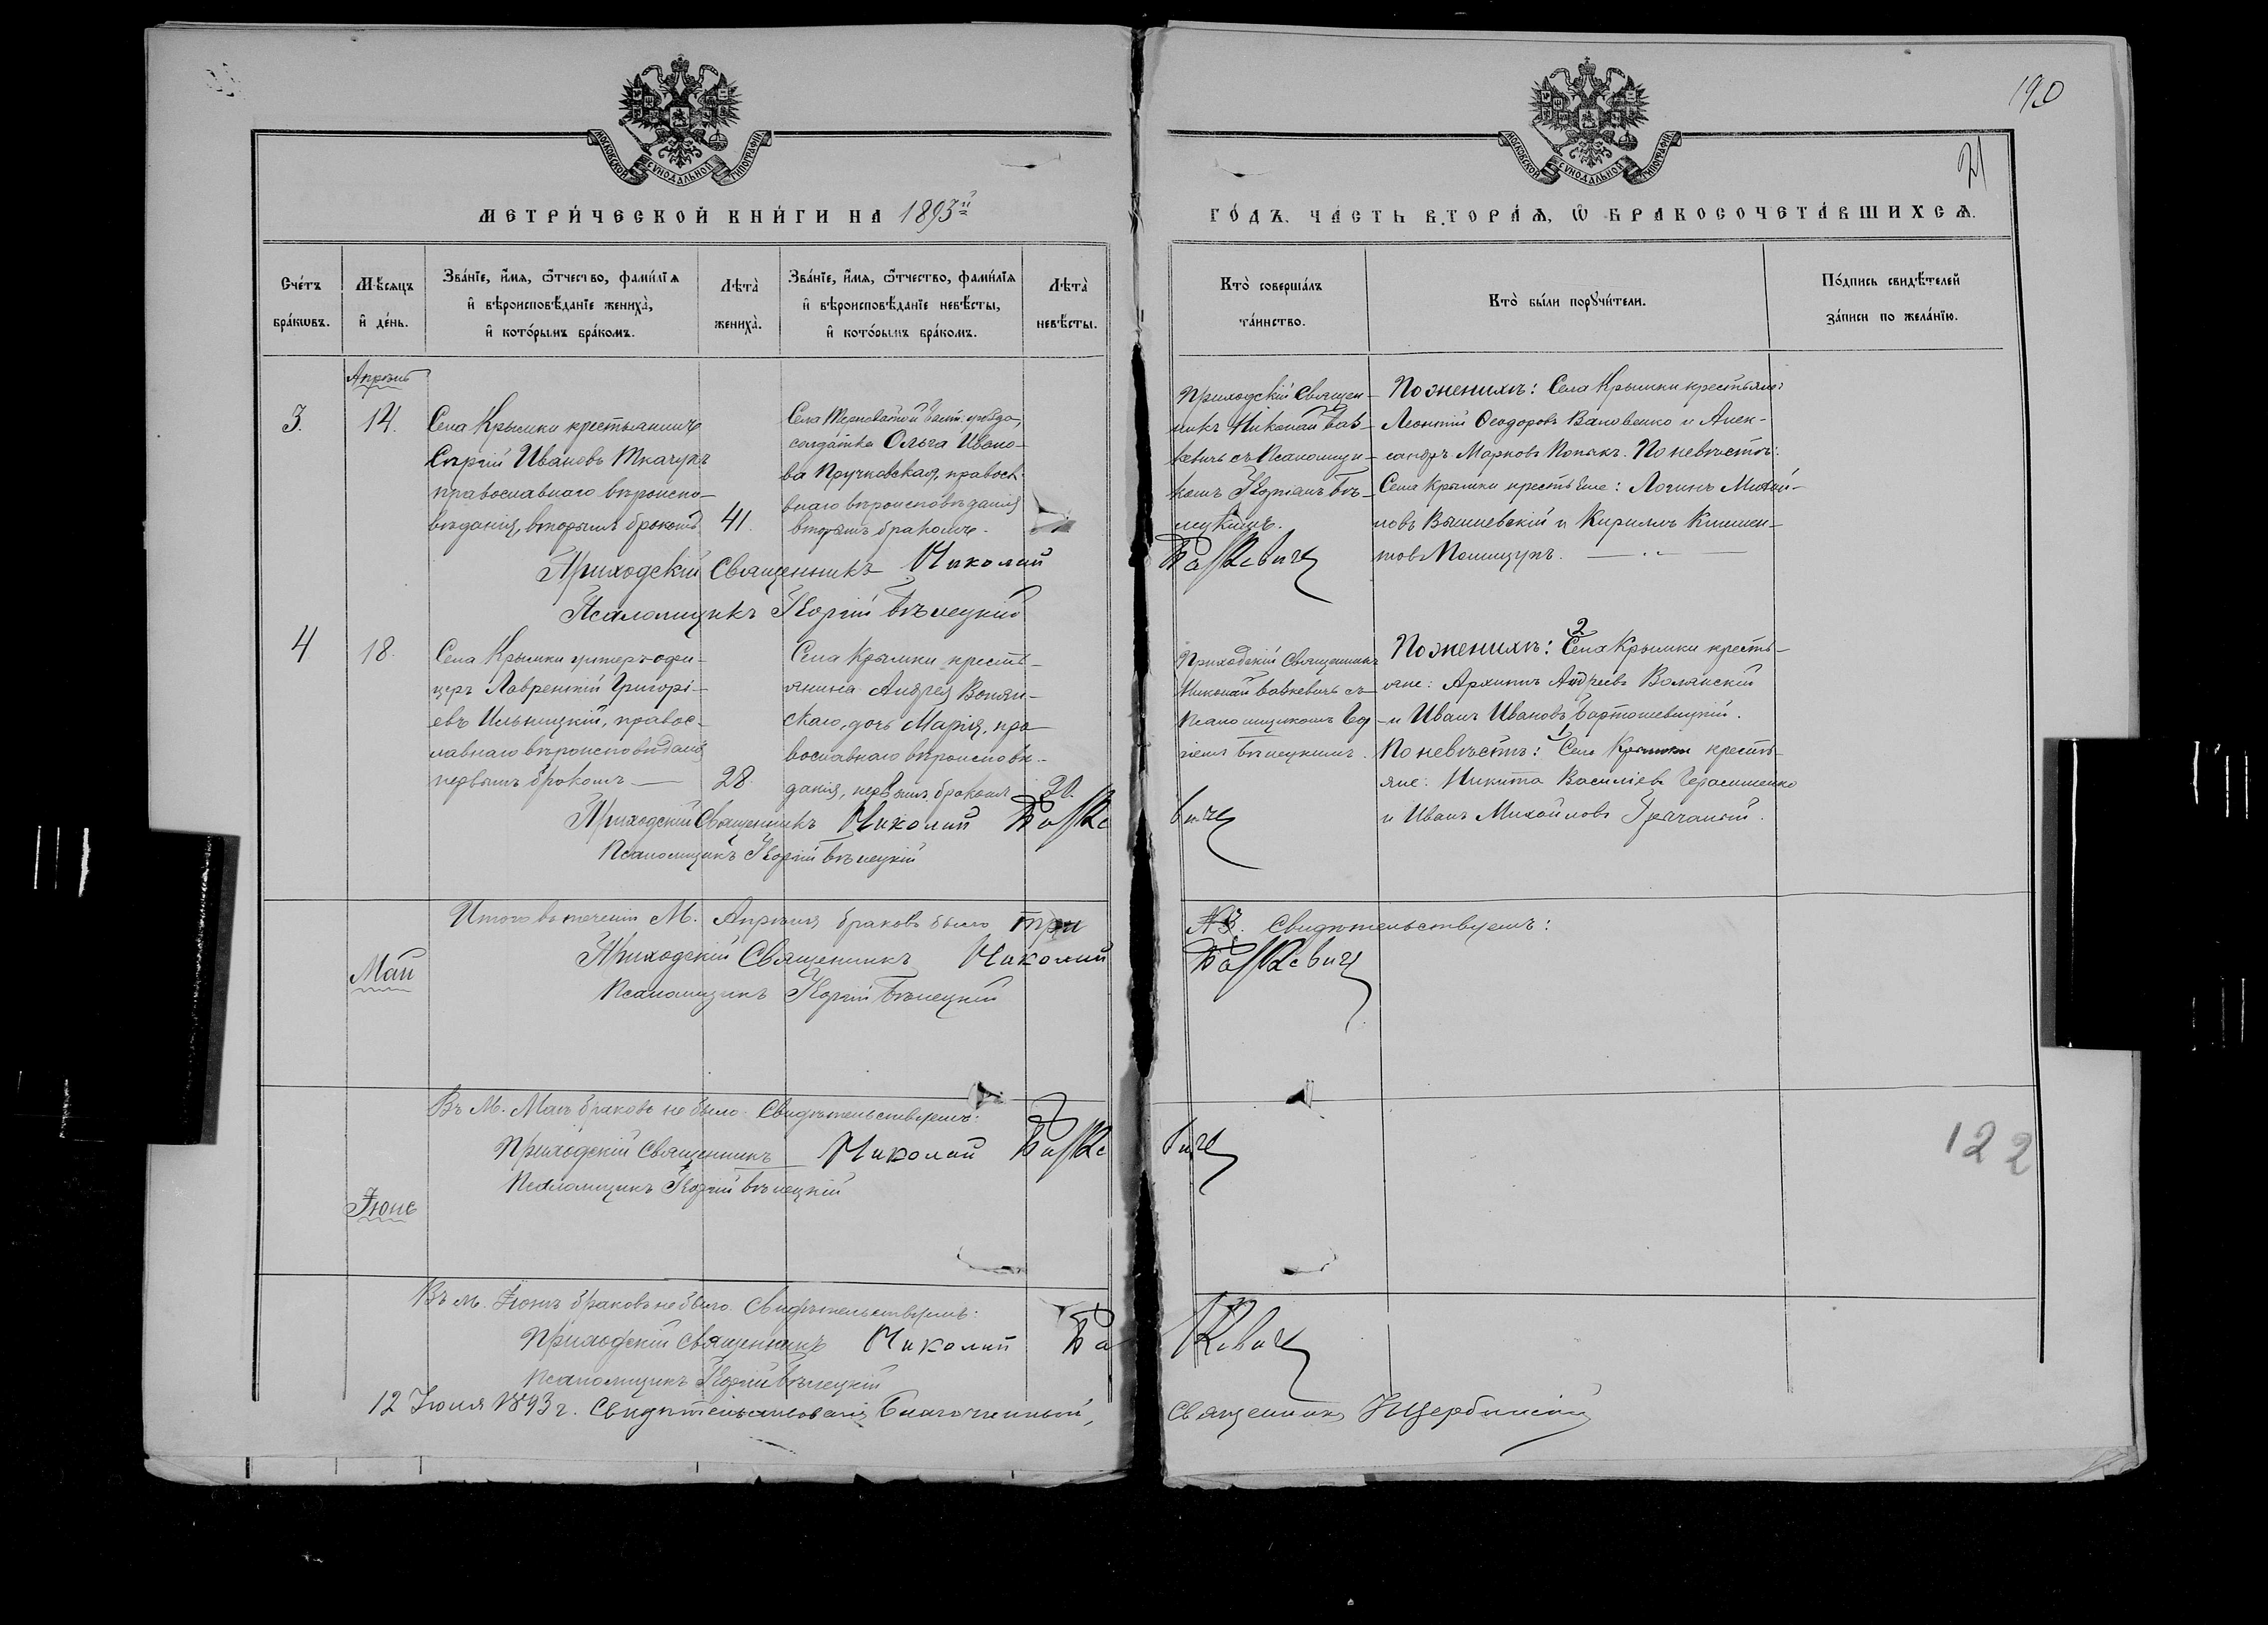 190
21
МОСКОВСКОЙ СѴНОДАЛЬНОЙ ТИПОГРАФІИ
МОСКОВСКОЙ СѴНОДАЛЬНОЙ ТИПОГРАФІИ
МЕТРИ́ЧЕСКОЙ КНИ́ГИ НА 1893й
ГО́ДЪ. ЧА́СТЬ ВТОРА́Ѧ, Ѡ БРАКОСОЧЕТА́ВШИХСѦ.
Сче́тъ бра́кѡвъ.
Мѣ́сѧцъ и҆ де́нь.
Зва́нїе, и҆́мѧ, ѻ҆́тчество, фами́лїѧ и҆ вѣроисповѣ́данїе жениха̀, и҆ кото́рымъ бра́комъ.
Лѣта̀ жениха̀.
Зва́нїе, и҆́мѧ, ѻ҆́тчество, фами́лїѧ и҆ вѣроисповѣ́данїе невѣ́сты, и҆ кото́рымъ бра́комъ.
Лѣта̀ невѣ́сты.
Кто̀ соверша́лъ та́инство.
Кто̀ бы́ли порꙋчи́тели.
По́дпись свидѣ́телей за́писи по жела́нїю.
Апрѣль
3.
14.
Села Крымки крестьянинъ
Сергій Ивановъ Ткачукъ
православнаго вѣроиспо-
вѣданія, вторымъ бракомъ
41.
солдатка Ольга Ивано-
ва Пручковская, правосл-
внаго вѣроисповѣданія
вторымъ бракомъ.
Приходскій Священ-
никъ Николай Бась-
кевичъ съ Псаломщи-
комъ Георгіемъ Бѣ-
лецкимъ.
По женихѣ: Села Крымки крестьяне
Леонтій Ѳеодоровъ Вановенко и Алек-
сандръ Марковъ Копыкъ. По невѣстѣ:
Села Крымки крестьяне: Логинъ Михай-
ловъ Вышневскій и Кириллъ Климен-
товъ
Приходскій Священникъ Николай Баськевичъ
Псаломщикъ Георгій Бѣлецкій
4
18.
Села Крымки унтеръ-офи-
церъ Лаврентій Григорі-
евъ Ильницкій, правос-
лавнаго вѣроисповѣданія
первымъ бракомъ
28
Села Крымки кресть-
янина Андрея Волян-
скаго, дочь Марія, пра-
вославнаго вѣроисповѣ-
данія, первымъ бракомъ
20.
Приходскій Священникъ
Николай Баськевичъ съ
Псаломщикомъ Геор-
гіемъ Бѣлецкимъ.
По женихѣ: Села Крымки кресть-
яне: Архипъ Андреевъ Волянскій
и Иванъ Ивановъ Бартошевицкій.
По невѣстѣ: Села Крымки кресть-
яне: Никита Василіевъ Герасименко
и Иванъ Михайловъ Гречаный.
Приходскій Священникъ Николай Баськевичъ
Псаломщикъ Георгій Бѣлецкій
Итого въ теченіи М. Апрѣля браковъ было три
№3. Свидѣтельствуемъ:
Приходскій Священникъ Николай Баськевичъ
Май
Псаломщикъ Георгій Бѣлецкій
Въ М. Маѣ браковъ не было. Свидѣтельствуемъ:
Приходскій Священникъ Николай Баськевичъ
Псаломщикъ Георгій Бѣлецкій
122
Іюнь
Въ м. Іюнѣ браковъ не было. Свидѣтельствуемъ:
Приходскій Священникъ Николай Баськевичъ
Псаломщикъ Георгій Бѣлецкій
12 Іюля 1893 г. Свидѣтельствовалъ Благочинный,
Священникъ Щербинскій